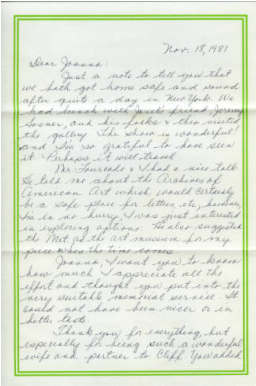 Nov. 18, 1981
Dear Joanna:
Just a note to tell you that
we both got home safe and sound
after quite a day in New York. We
had lunch with friend Jeremy
and his folks & then visited
the gallery. The show is wonderful!
and I'm so grateful to have seen
it. Perhaps it will travel.
Mr. Fourcade & I had a nice talk
He told me about the Archives of
American Art which would certainly
be a safe place for letters, etc. however,
I'm in no hurry, I was just interested
in exploring options. He also suggested
the Met as the art museum for my
piece when the time comes.
Joanna, I want you to know
how much I appreciate all the
effort and thought you put into the
very suitable memorial service. It
could not have been nicer or in
better taste.
Thank you for everything, but
especially for being such a wonderful
wife and partner to Cliff. You added